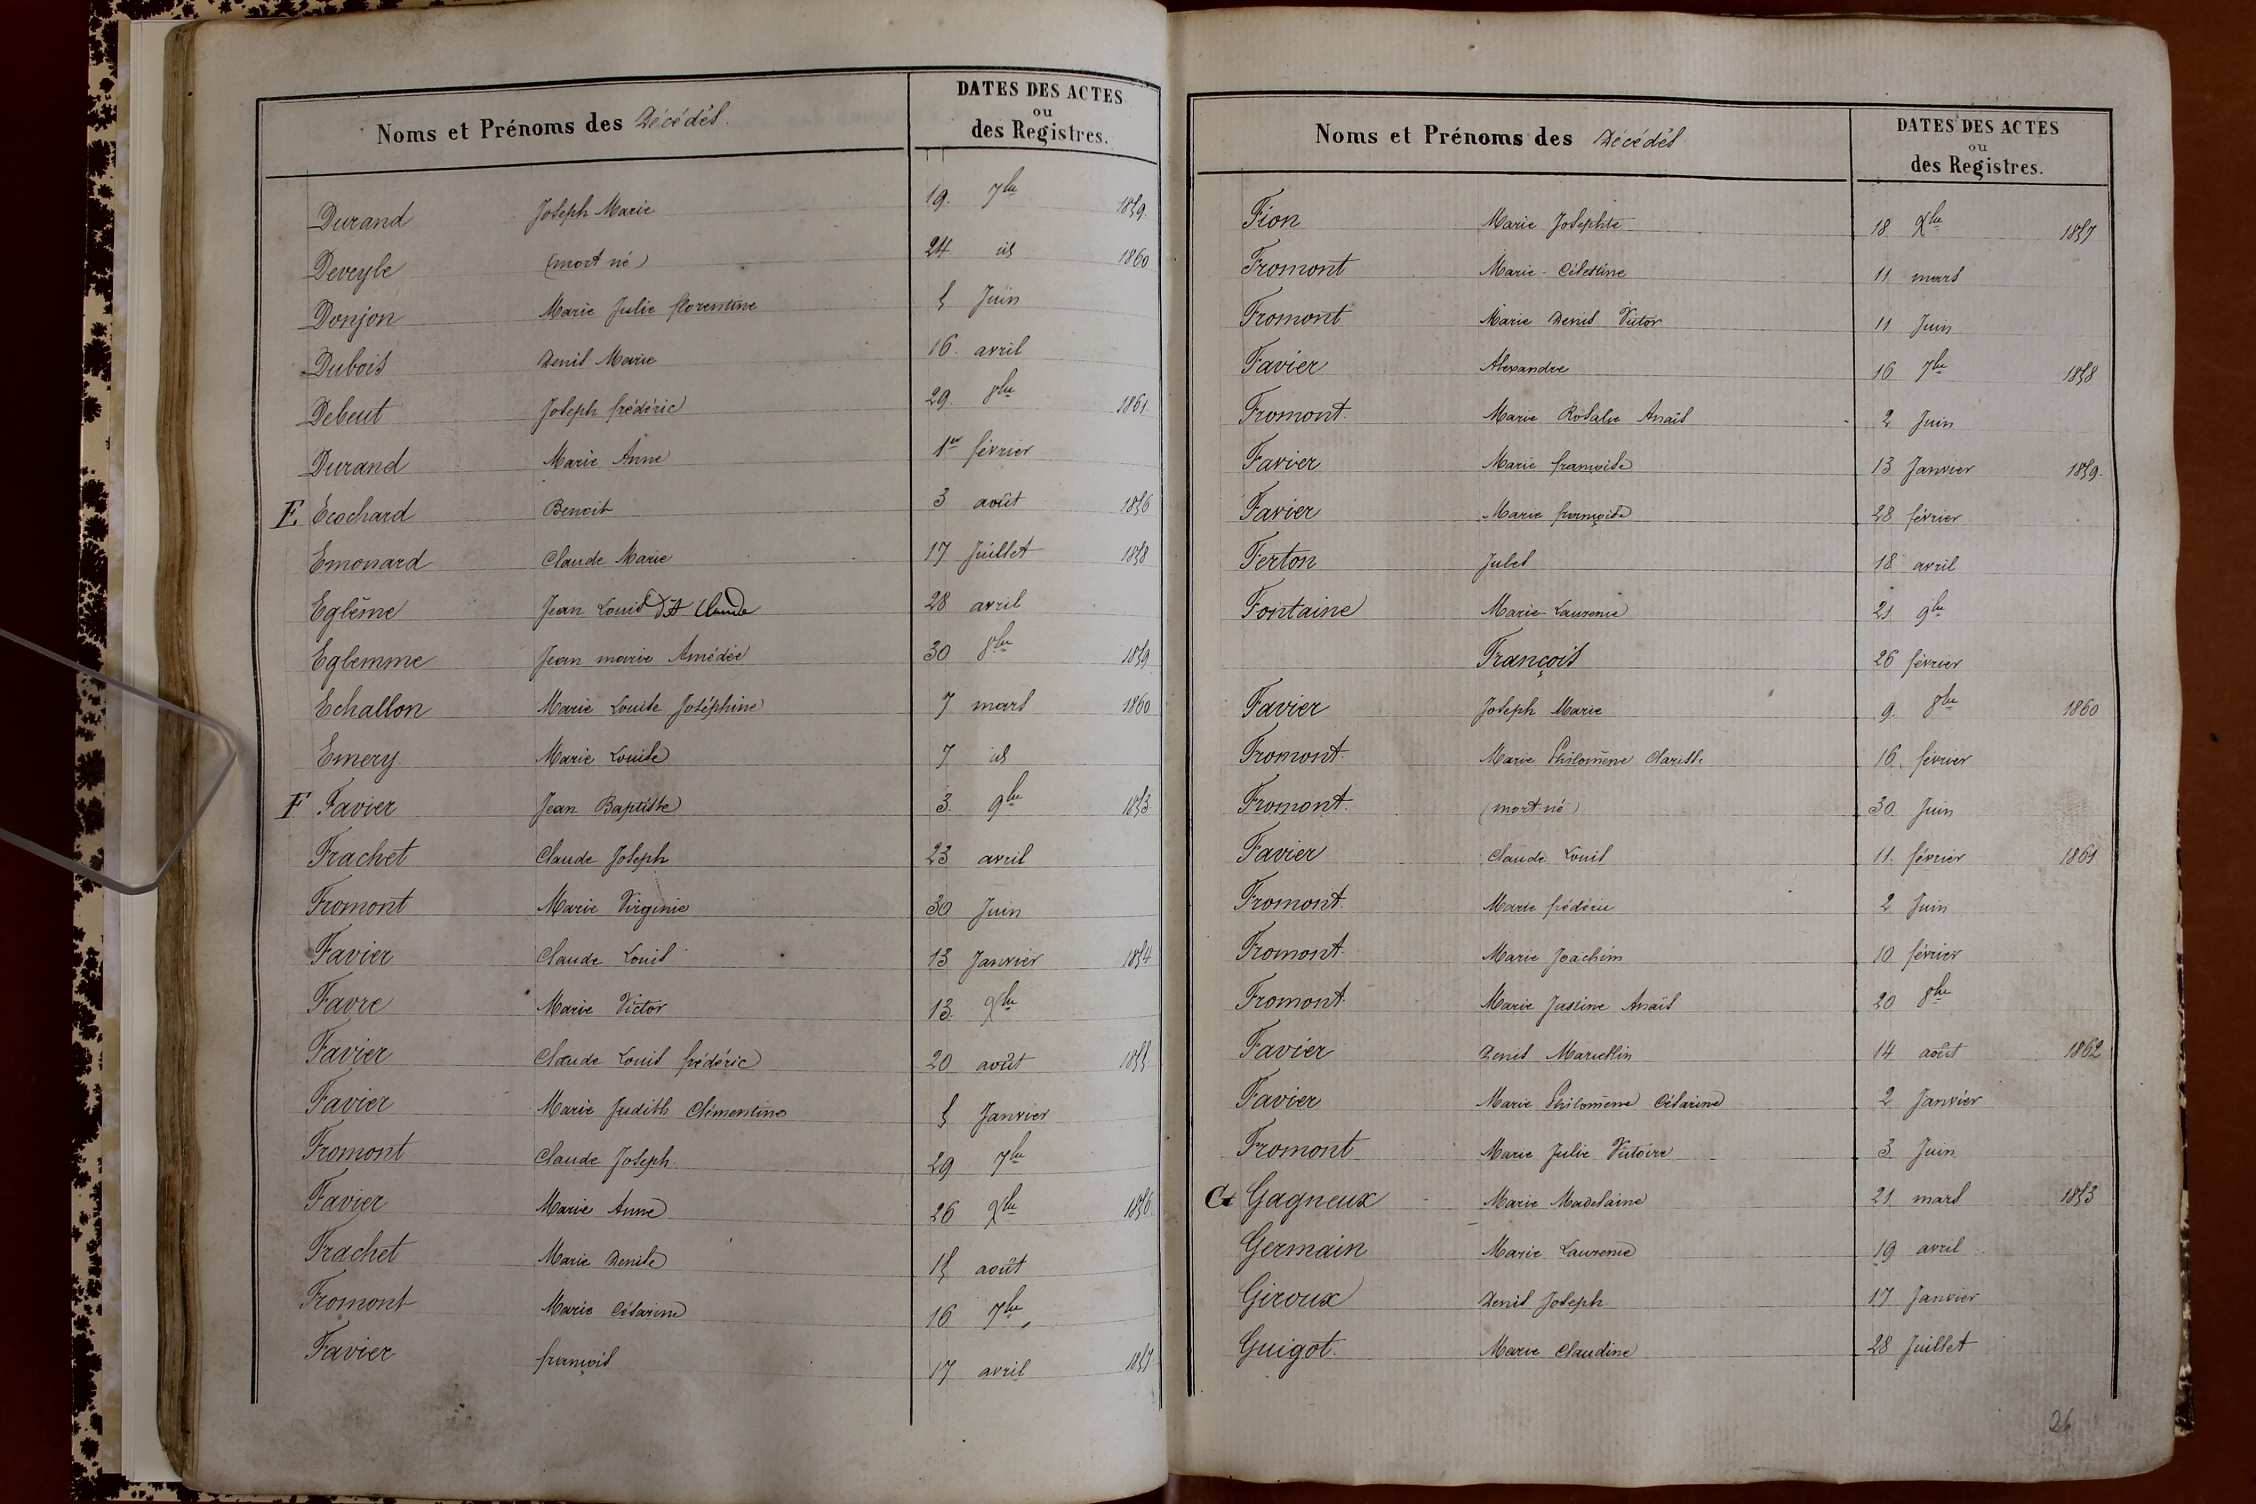 Noms et Prénoms des Décédés.
DATES DES ACTES
ou
des Registres.
Durand Joseph Marie 19. 7bre 1859.
Deveyle (mort né) 24 id 1860
Donjon Marie Julie florentine 5 Juin
Dubois Denis Marie 16. avril
Debeut Joseph frédéric 29. 8bre 1861.
Durand Marie Anne 1er février
E. Ecochard Benoit 3 août 1856
Emonard Claude Marie 17 Juillet 1858
Eglême Jean Louis dit Claude 28 avril
Eglemme Jean marie Amédée 30 8bre 1859
Echallon Marie Louise Joséphine 7 mars 1860
Emery Marie Louise 7 id
F Favier Jean Baptiste 3. 9bre 1853
Frachet Claude Joseph 23 avril
Fromont Marie Virginie 30 Juin
Favier Claude Louis 13 Janvier 1854
Favre Marie Victor 13. Xbre
Favier Claude Louis frédéric 20 août 1855
Favier Marie Judith Clémentine 5 Janvier
Fromont Claude Joseph. 29 7bre
Favier Marie Anne 26 Xbre 1856
Frachet Marie Denise 15 août
Fromont Marie Césarine 16 7bre
Favier françois 17 avril 1857
Noms et Prénoms des Décédés
DATES DES ACTES
ou
des Registres.
Fion Marie Josephte 18 Xbre 1857
Fromont Marie-Célestine 11 mars
Fromont Marie Denis Victor 11 Juin
Favier Alexandre 16 7bre 1858
Fromont. Marie Rosalie Anaïs 2 Juin
Favier Marie françoise 13 Janvier 1859.
Favier Marie françoise 28 février
Ferton Jules 18 avril
Fontaine Marie-Laurence 21 9bre
François 26 février
Favier Joseph Marie 9. 8bre 1860
Fromont. Marie Philomène Clarisse 16. février
Fromont. (mort-né) 30 Juin
Favier Claude Louis 11. février 1861
Fromont. Marie frédéric 2 Juin
Fromont. Marie Joachim 10 février
Fromont. Marie Justine Anaïs 20 8bre
Favier Denis Marcellin 14 août 1862
Favier Marie Philomène Césarine 2 Janvier
Fromont Marie Julie Victoire 3 Juin
G Gagneux Marie Madelaine 21 mars 1853
Germain Marie Laurence 19 avril
Giroux Denis Joseph 17 Janvier
Guigot. Marie Claudine 28 Juillet
26